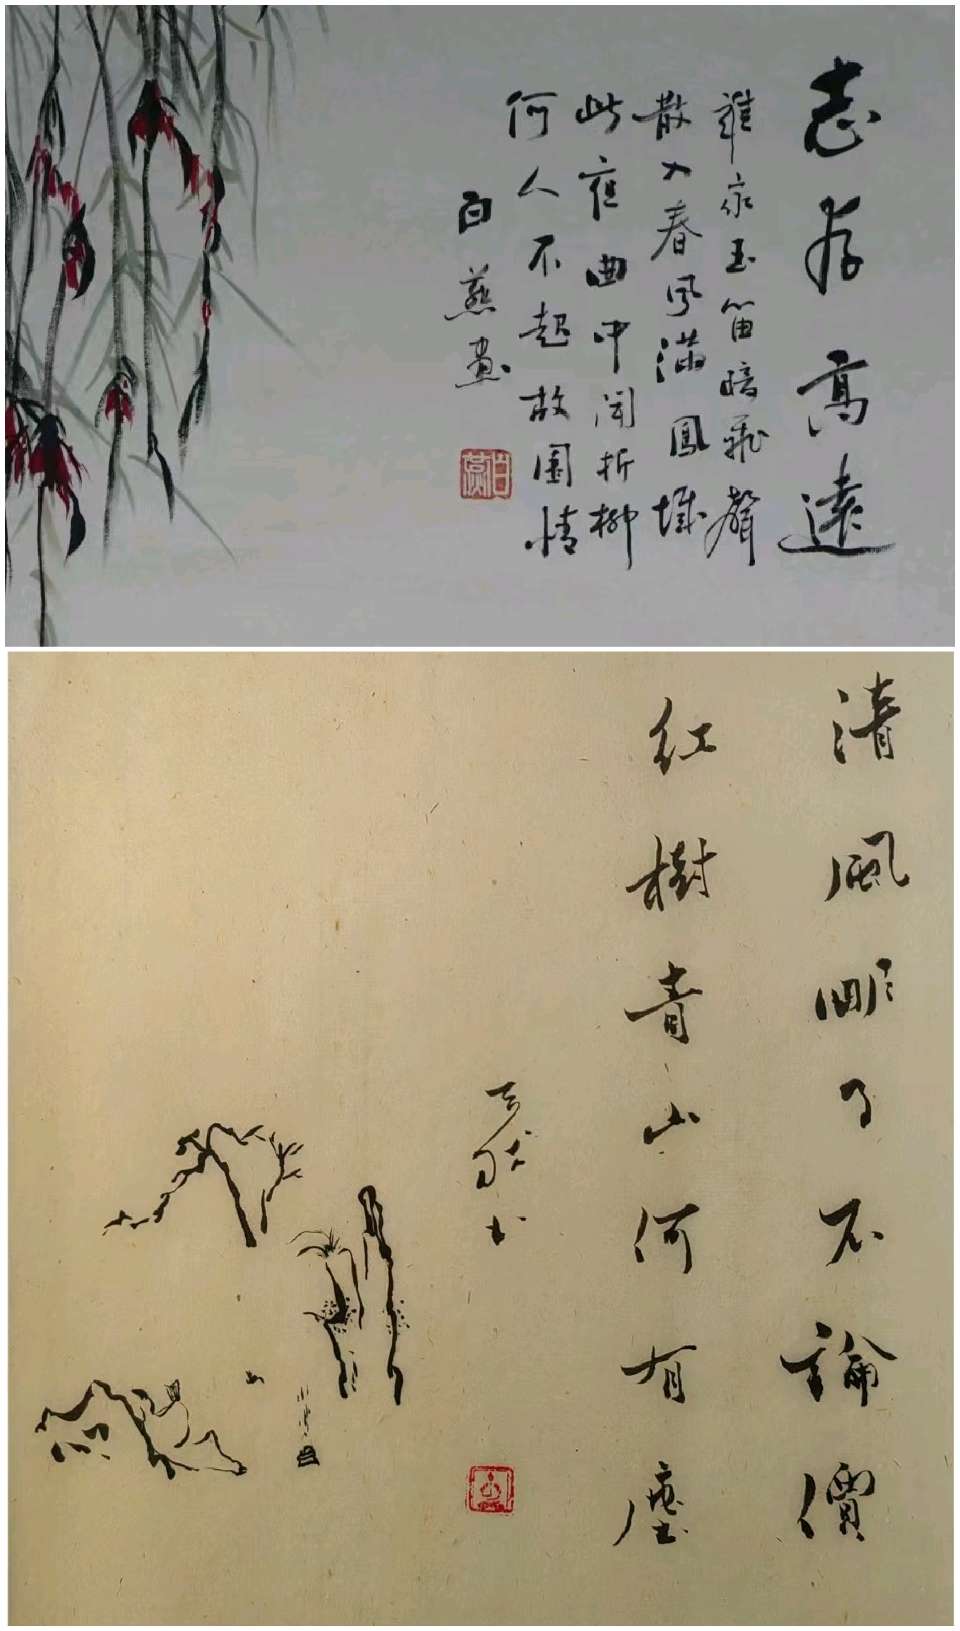 志存高遠
誰家玉笛暗飛聲
散入春風滿鳳城
此夜曲中聞折柳
何人不起故園情
白燕畫
清風明月不論價
紅樹青山何有塵